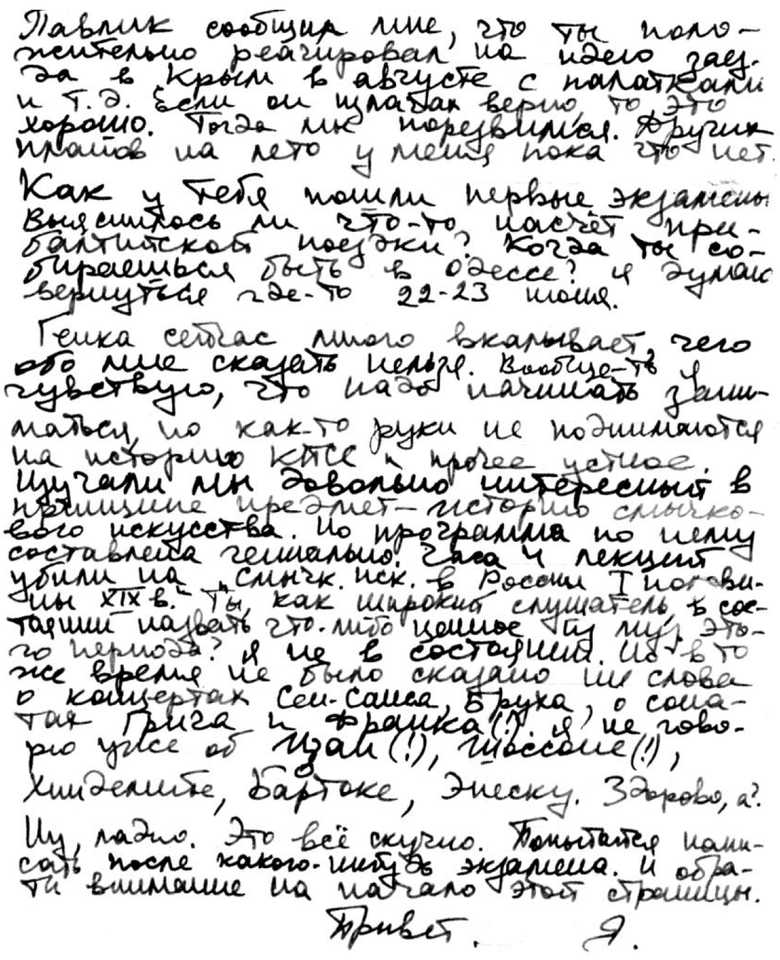 Павлик сообщил мне, что ты поло-
жительно реагировал на идею заез-
да в Крым в августе с палатками
и т.д. Если он нигде верно, то это
хорошо. Тогда мы порезвимся. Других
планов на лето у меня пока что нет.
Как у тебя пошли первые экзамены
Выяснилось ли что-то насчёт при-
балтийской поездки? Когда ты со-
бираешься быть в Одессе? Я думаю
вернуться где-то 22-23 июня.
Генка сейчас много вкалывает, чего
обо мне сказать нельзя. Вообще-то я
чувствую, что надо начинать зани-
маться, но как-то руки не поднимаются
на историю КПСС и прочее устное.
Изучали мы довольно интересный в
принципе предмет - историю смычко-
вого искусства. Но программа по нему
составлена гениально. Часа 4 лекций
убили на „смычк. иск. в России I полови-
ны XIX в." Ты, как широкий слушатель, в сос-
тоянии назвать что-либо ценное из муз. это-
го периода? Я не в состоянии. Но в то
же время не было сказано ни слова
о концертах Сен-Санса, Бруха, о сона-
тах Грига и Франка (!). Я не гово-
рю уже об Изаи (!), Шоссоне (!),
Хиндемите, Бартоке, Энеску. Здорово, а?
Ну, ладно. Это всё скучно. Попытайся напи-
сать после какого-нибудь экзамена. И обра-
ти внимание на начало этой страницы.
Привет. Я.